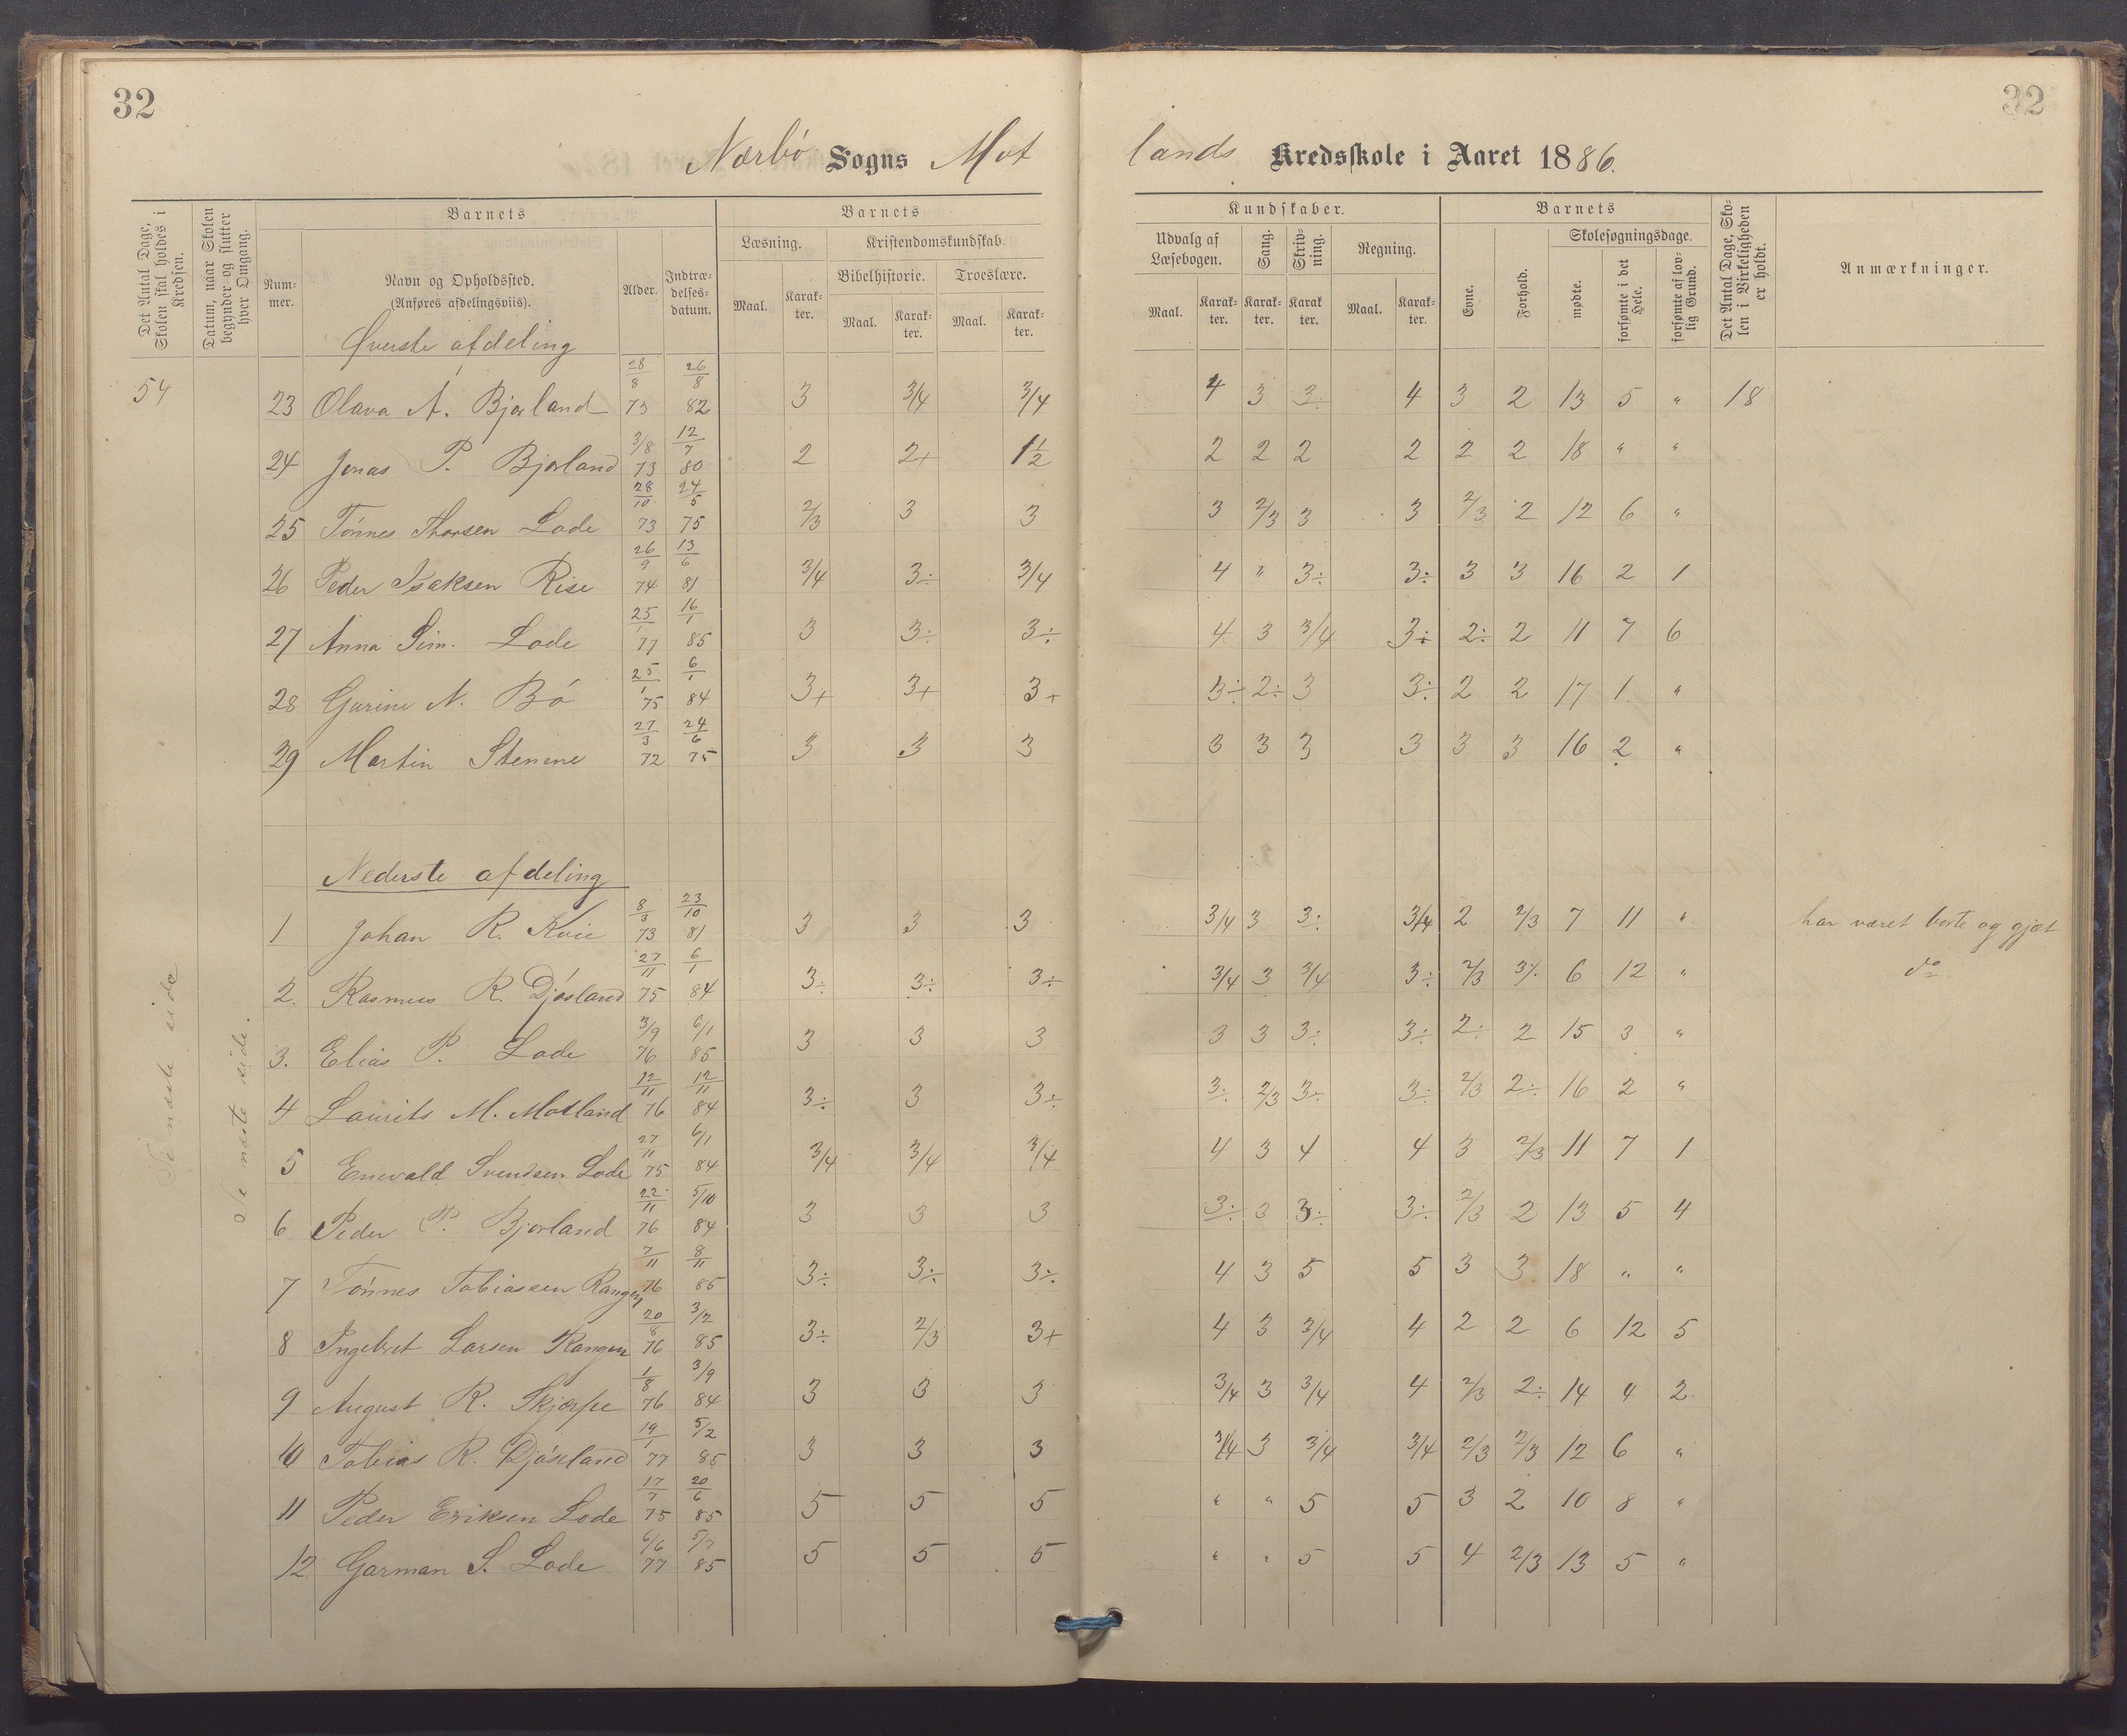 32
32
Nærbø Sogns Mot
lands Kredsskole i Aaret 1886.
Det Antal Dage, Skolen skal holdes i Kredsen.
Datum, naar Skolen begynder og slutter hver Omgang.
Barnets
Barnets
Kundskaber.
Barnets
Det Antal Dage, Skolen i Virkeligheden er holdt.
Anmærkninger.
Nummer.
Navn og Opholdssted.
(Anføres afdelingsviis).
Alder.
Indtrædelsesdatum.
Læsning.
Kristendomskundskab.
Bibelhistorie.
Troeslære.
Udvalg af Læsebogen.
Sang.
Skrivning.
Regning.
Evne.
Forhold.
Skolesøgningsdage.
mødte.
forsømte i det Hele.
forsømte af lovlig Grund.
Maal. Karakter. Maal. Karakter. Maal. Karakter.
Maal. Karakter. Karakter. Karakter. Maal. Karakter.
Øverste afdeling
54 23 Olava A. Bjorland 28/8 73 26/8 82 3 3/4 3/4 4 3 3÷ 4 3 2 13 5 " 18
24 Jonas P. Bjorland 3/8 73 12/7 80 2 2+ 1½ 2 2 2 2 2 2 18 " "
25 Tønnes Thorsen Lode 28/10 73 24/5 75 2/3 3 3 3 2/3 3 3 2/3 2 12 6 "
26 Peder Isaksen Rise 26/9 74 13/6 81 3/4 3÷ 3/4 4 " 3÷ 3÷ 3 3 16 2 1
27 Anna Sim. Lode 25/1 77 16/1 85 3 3÷ 3÷ 4 3 3/4 3÷ 2÷ 2 11 7 6
28 Gurine N. Bø 25/1 75 6/1 84 3+ 3+ 3+ 3÷ 2÷ 3 3÷ 2 2 17 1 "
29 Martin Stenene 27/3 72 24/6 75 3 3 3 3 3 3 3 3 3 16 2 "
Nederste afdeling
1 Johan R. Kvie 8/3 73 23/10 81 3 3 3 3/4 3 3÷ 3/4 2 2/3 7 11 " har været borte og gjæt
2. Rasmus R. Djøsland 27/11 75 6/1 84 3÷ 3÷ 3÷ 3/4 3 3/4 3÷ 2/3 3÷ 6 12 " do
3. Elias P. Lode 3/9 76 6/1 85 3 3 3 3 3 3÷ 3÷ 2÷ 2 15 3 "
4 Laurits M. Motland 12/11 76 12/11 84 3÷ 3 3÷ 3÷ 2/3 3÷ 3÷ 2/3 2÷ 16 2 "
5 Enevald Svendsen Lode 27/11 75 6/1 84 3/4 3/4 3/4 4 3 4 4 3 2/3 11 7 1
6 Peder P. Bjorland 22/11 76 5/10 84 3 3 3 3÷ 3 3÷ 3÷ 2/3 2 13 5 4
7 Tønnes Tobiassen Rangen 7/11 76 8/11 85 3÷ 3÷ 3÷ 4 3 5 5 3 3 18 " "
8 Ingebret Larsen Rangen 20/8 76 3/2 85 3÷ 2/3 3+ 4 3 3/4 4 2 2 6 12 5
9 August R. Skjærpe 1/8 76 3/9 84 3 3 3 3/4 3 3/4 4 2/3 2÷ 14 4 2
10 Tobias R. Djøsland 19/1 77 5/2 85 3 3 3 3/4 3 3/4 3/4 2/3 2/3 12 6 "
11 Peder Eriksen Lode 17/7 75 20/6 85 5 5 5 " " 5 5 3 2 10 8 "
12 Garman S. Lode 6/6 77 5/7 85 5 5 5 " " 5 5 4 2/3 13 5 "
Se næste side
Se næste side.